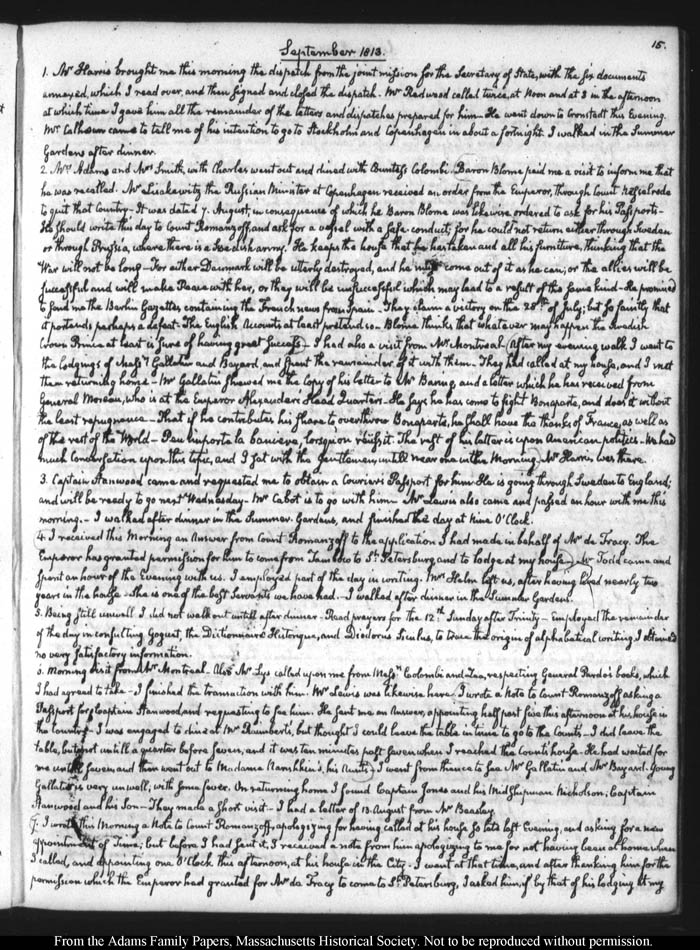 15.
September 1813.
1. Mr. Harris brought me this morning the dispatch from the joint mission for the Secretary of State, with the six documents
annexed, which I read over, and then signed and closed the dispatch. Mr Redwood called twice, at Noon and at 3 in the afternoon
at which time I gave him all the remainder of the letters and dispatches prepared for him. He went down to Cronstadt this Evening.
Mr Calhoun came to tell me of his intention to go to Stockholm and Copenhagen in about a fortnight. I walked in the Summer
Gardens after dinner.
2. Mrs Adams and Mrs Smith, with Charles went out and dined with Countess Colombi. Baron Blome paid me a visit to inform me that
he was recalled. Mr Lisakewitz the Russian Minister at Copenhagen received an order from the Emperor, through Count Nesselrode
to quit that Country — It was dated 7. August, in consequence of which he Baron Blome was likewise ordered to ask for his Passports —
He should write this day to Count Romanzoff, and ask for a vessel with a safe conduct; for he could not return either through Sweden
or through Prussia, where there is a Swedish army. He keeps the house that he has taken and all his furniture, thinking that the
War will not be long — For either Denmark will be utterly destroyed, and he must come out of it as he can; or the allies will be
successful and will make Peace with her, or they will be unsuccessful which may lead to a result of the same kind — He promised
to send me the Berlin Gazettes containing the French news from Spain. They claim a victory on the 28th of July; but so faintly that
it portends perhaps a defeat — The English Accounts at least pretend so — Blome thinks that whatever may happen the Swedish
Crown Prince at least is sure of having great success — I had also a visit from Mr. Montreal. After my evening walk I went to
the lodgings of Messrs Gallatin and Bayard, and spent the remainder of it with them. They had called at my house, and I met
them returning home — Mr Gallatin shewed me the copy of his letter to Mr Baring, and a letter which he has received from
General Moreau, who is at the Emperor Alexander's Head Quarters — He says he has come to fight Bonaparte, and does it without
the least repugnance — That if he contributes his share to overthrow Bonaparte, he shall have the thanks of France, as well as
of the rest of the World — Peu importe la banniere, lorsqu'on réussit. The rest of his letter is upon American politics. We had
much conversation upon this topic, and I sat with the Gentlemen, until near one in the Morning. Mr Harris was there.
3. Captain Stanwood came and requested me to obtain a Courier's Passport for him. He is going through Sweden to England;
and will be ready to go next Wednesday — Mr Cabot is to go with him — Mr Lewis also came and passed an hour with me this
morning. — I walked after dinner in the Summer Gardens, and finished the day at Nine O'Clock.
4. I received this Morning an Answer from Count Romanzoff to the application I had made in behalf of Mr de Tracy. The
Emperor has granted permission for him to come from Tambow to St. Petersburg, and to lodge at my house — Mr Todd came and
spent an hour of the Evening with us. I employed part of the day in writing. Mrs Helm left us, after having lived nearly two
years in the house — She is one of the best Servants we have had. — I walked after dinner in the Summer Gardens.
5. Being still unwell I did not walk out until after dinner — Read prayers for the 12th Sunday after Trinity — employed the remainder
of the day in consulting Goguet, the Dictionnaire Historique, and Diodorus Siculus, to trace the origin of alphabetical writing I obtained
no very satisfactory information.
6. Morning visit from Mr. Montreal. Also Mr Lys called upon me from Messrs Colombi and Zea, respecting General Pardo's books, which
I had agreed to take — I finished the transaction with him. Mr Lewis was likewise here. I wrote a Note to Count Romanzoff asking a
Passport for Captain Stanwood, and requesting to see him. He sent me an Answer, appointing half past five this afternoon at his house in
the country — I was engaged to dine at Mr Raimbert's, but thought I could leave the table in time to go to the Count's — I did leave the
table, but not until a quarter before seven, and it was ten minutes past seven when I reached the Count's house. He had waited for
me until seven, and then went out to Madame Narishkin's, his Aunt's — I went from thence to see Mr Gallatin and Mr Bayard. Young
Gallatin is very unwell, with some fever. On returning home I found Captain Jones and his Midshipman Nicholson; Captain
Stanwood and his Son — They made a short visit — I had a letter of 13 August from Mr Beasley.
7. I wrote this Morning a Note to Count Romanzoff, apologizing for having called at his house so late last Evening, and asking for a new
appointment of time; but before I had sent it, I received a note from him apologizing to me for not having been at home when
I called, and appointing one O'Clock this afternoon, at his house in the City. I went at that time, and after thanking him for the
permission which the Emperor had granted for Mr de Tracy to come to St. Petersburg, I asked him, if by that of his lodging at my
From the Adams Family Papers, Massachusetts Historical Society. Not to be reproduced without permission.